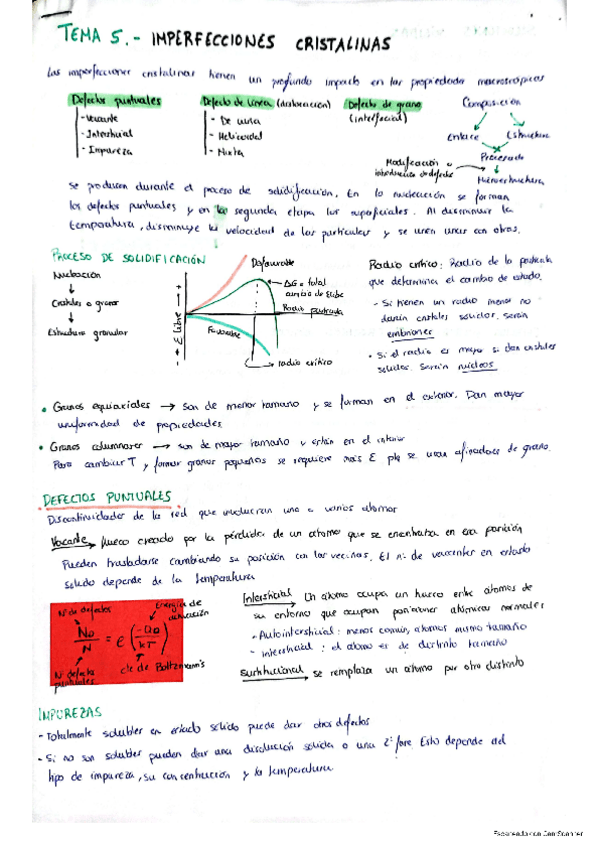 TEMA 5.- IMPERFECCIONES CRISTALINAS
Las imperfecciones cristalinas tienen un profundo impacto en las propiedades macroscópicas
Defectos puntuales
- Vacante
- Intersticial
- Impureza
Defecto de línea (dislocación)
- De cuña
- Helicoidal
- Mixta
Defecto de grano
(interfacial)
Composición
Enlace
Estructura
Procesado
Modificación o
introducción de defectos
Microestructura
Se producen durante el proceso de solidificación. En la nucleación se forman
los defectos puntuales y en la segunda etapa los superficiales. Al disminuir la
temperatura, disminuye la velocidad de las partículas y se unen unas con otras.
PROCESO DE SOLIDIFICACIÓN
Nucleación
Cristales o granos
Estructura granular
- E libre +
Desfavorable
ΔG = total
cambio de E libre
Radio partícula
Favorable
radio crítico
Radio crítico: Radio de la partícula
que determina el cambio de estado.
- Si tienen un radio menor no
darán cristales sólidos. Serán
embriones
- Si el radio es mayor si dan cristales
sólidos. Serán núcleos
• Granos equiaxiales → son de menor tamaño y se forman en el exterior. Dan mayor
uniformidad de propiedades
• Granos columnares → son de mayor tamaño y están en el interior
Para cambiar T y formar granos pequeños se requiere más E se usan afinadores de grano.
DEFECTOS PUNTUALES
Discontinuidades de la red que involucran uno o varios átomos
Vacante hueco creado por la pérdida de un átomo que se encontraba en esa posición
Pueden trasladarse cambiando su posición con las vecinas. El nº de vacantes en estado
sólido depende de la temperatura
Nº de defectos
Energía de
activación
ND/N = e(-QD/kT)
Nº defectos
puntuales
cte de Boltzmann's
Intersticial Un átomo ocupa un hueco entre átomos de
su entorno que ocupan posiciones atómicas normales
- Autointersticial: menos común, átomos mismo tamaño
- Intersticial: el átomo es de distinto tamaño
Sustitucional se remplaza un átomo por otro distinto
IMPUREZAS
- Totalmente solubles en estado sólido puede dar otros defectos
- Si no son solubles pueden dar una disolución sólida o una 2ª fase. Esto depende del
tipo de impureza, su concentración y la temperatura
Escaneado con CamScanner